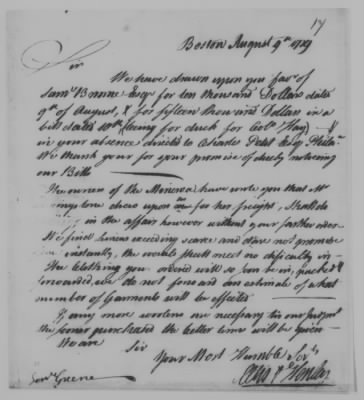 17
Boston August 9th 1779
Sir
We have drawn upon you favr. of
Saml. Bonner Esqr for ten thousand Dollars dated
9th of August, & for fifteen thousand Dollars in a
bill dated 10th (being for duck for Colo. Hay)
in your absence directed to Charles Petit Esq. Phila.
We thank you for your promise of duely noticing
our Bills
The owners of the Minerva have wrote you that Mr
drew upon me for her freight, I shall do
in the affair however without your further order
We find linens exceeding scarce and dare not promise
instantly, the woolens shall meet no difficulty in
The Cloathing you ordered will so soon be in, packed &
forwarded, we do not forward an estimate of what
number of Garments will be effected
If any more woolens are necessary for our purpose
the sooner purchased the better time will be given
We are Sir
Your Most Humble Servts
Otis & Henley
Genl. Greene